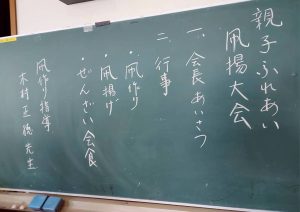 親子ふれあい
凧揚大会
一、会長あいさつ
二、行事
・凧作り
・凧揚げ
・ぜんざい会食
凧作り指導
木村正徳先生